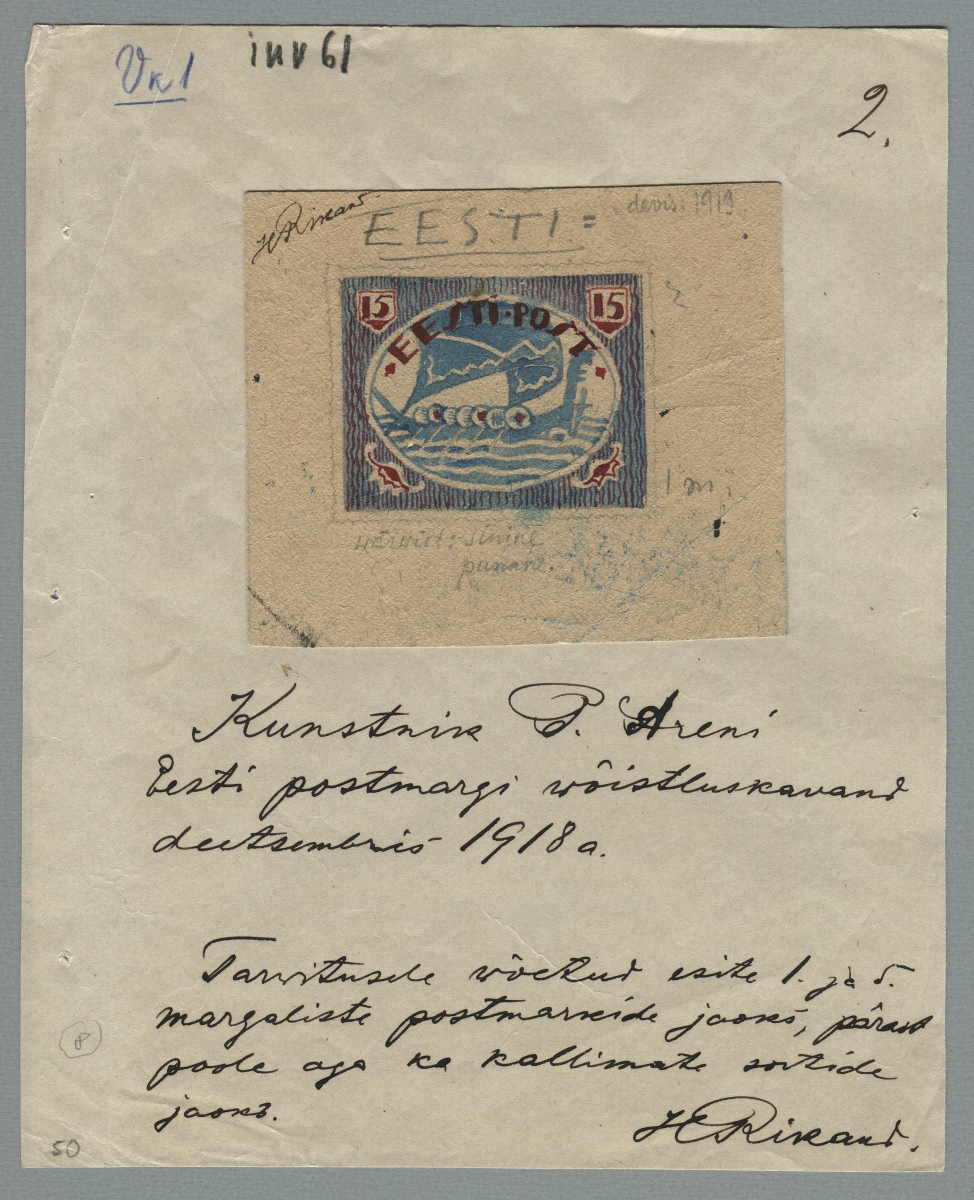 Vk 1
inv 61
2.
HRikand.
EESTI =
devis: 1919
15
15
EESTI·POST
1 m.
wärwid: sinine
punane.
Kunstnik P. Areni
Eesti postmargi wõistluskavand
deetsembris 1918 a.
Tarwitusele wõetud esite 1. ja 5.
margaliste postmarkide jaoks, pärast
poole aga ka kallimate sortide
jaoks.
HRikand.
8
50